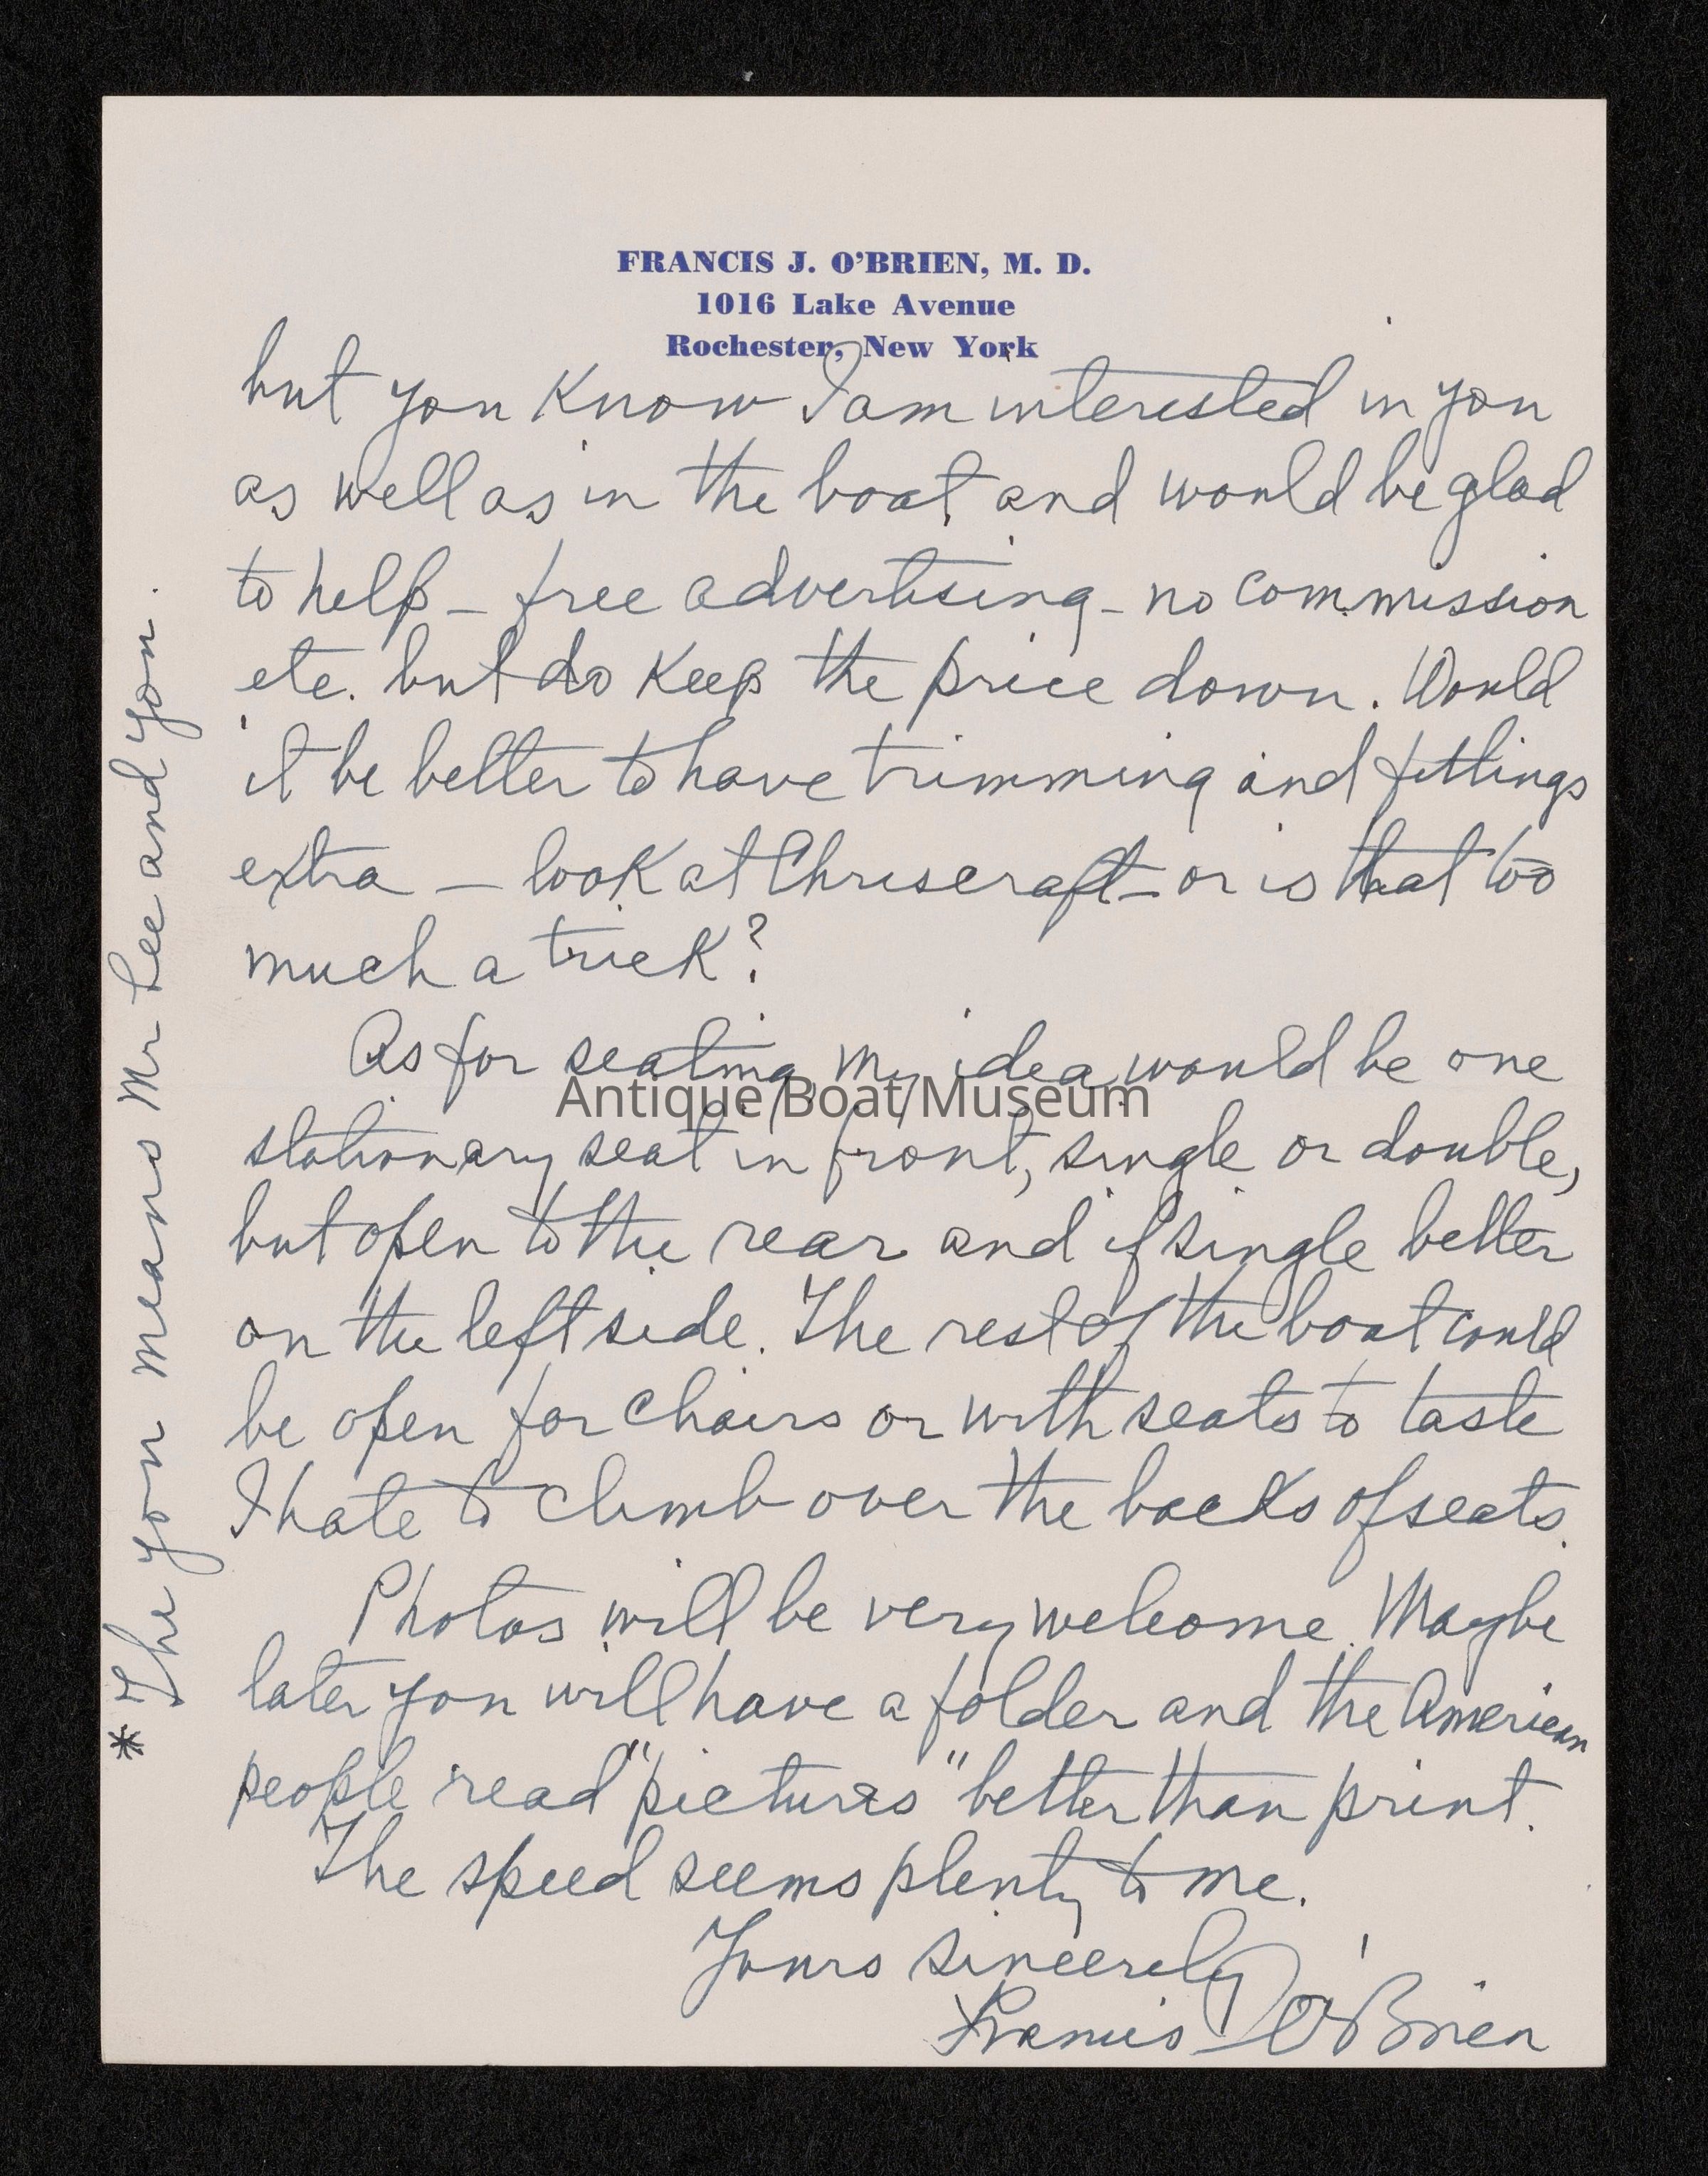 FRANCIS J. O'BRIEN, M. D.
1016 Lake Avenue
Rochester, New York
but you know I am interested in you
as well as in the boat and would be glad
to help - free advertising - no commission
etc. but do keep the price down. Would
it be better to have trimming and fittings
extra - look at Chriscraft - or is that too
much a trick?
As for seating, my idea would be one
Antique Boat Museum
stationary seat in front, single or double,
but open to the rear and if single better
on the left side. The rest of the boat could
be open for chairs or with seats to taste
I hate to climb over the backs of seats.
Photos will be very welcome. Maybe
later you will have a folder and the American
people read "pictures" better than print.
The speed seems plenty to me.
Yours sincerely
Francis J O'Brien
* The you means Mr Lee and you.